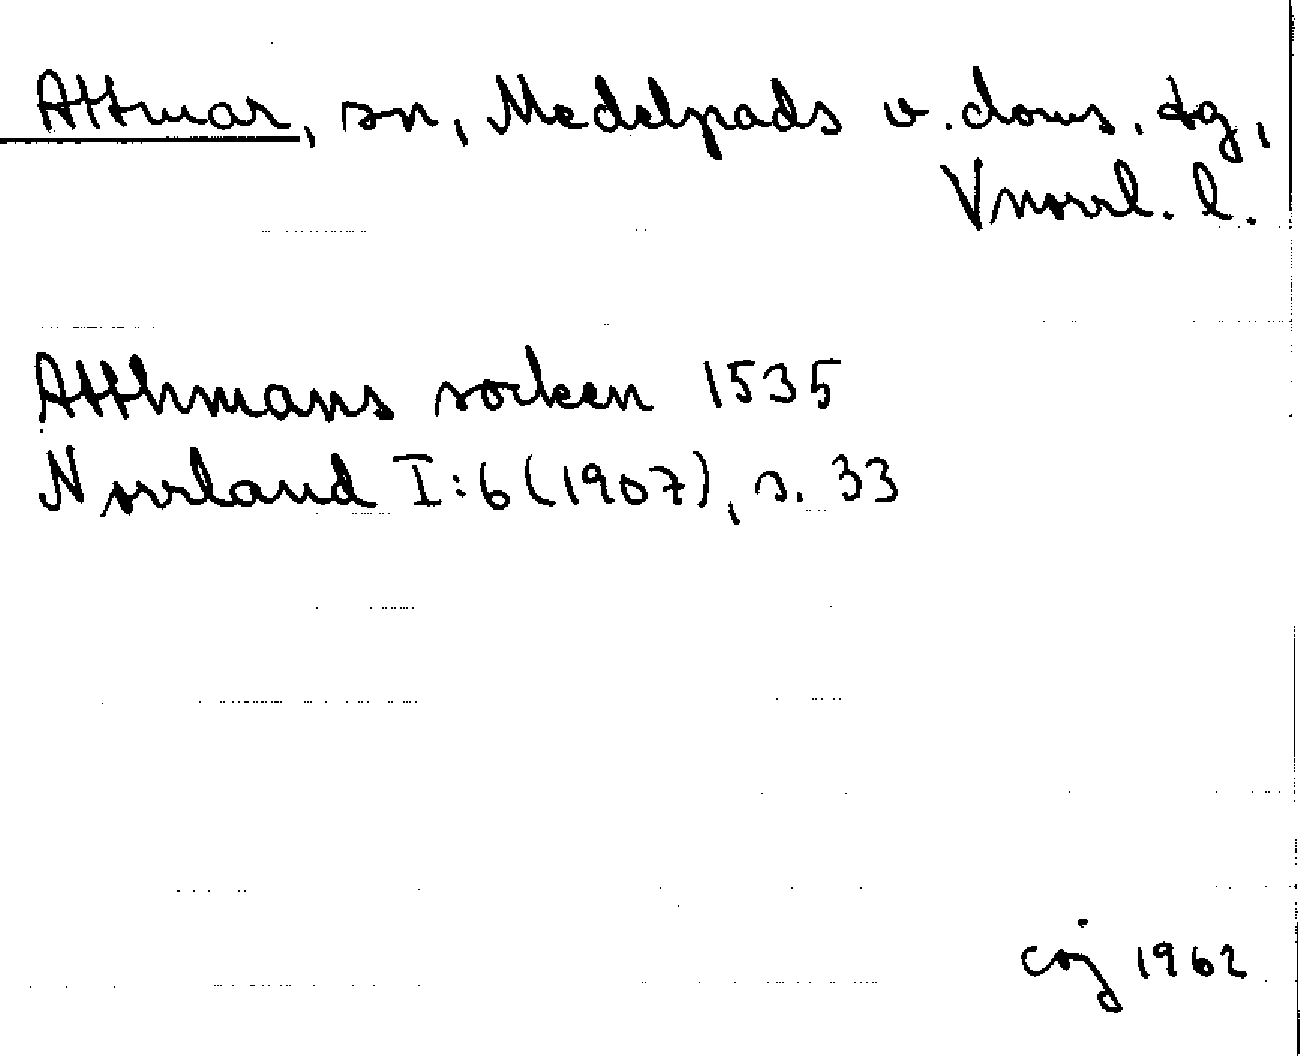 Attmar, sn, Medelpads v. doms. tg,
Vnorrl. l.
Atthmans socken 1535
Norrland I:6 (1907), s. 33
coj 1962